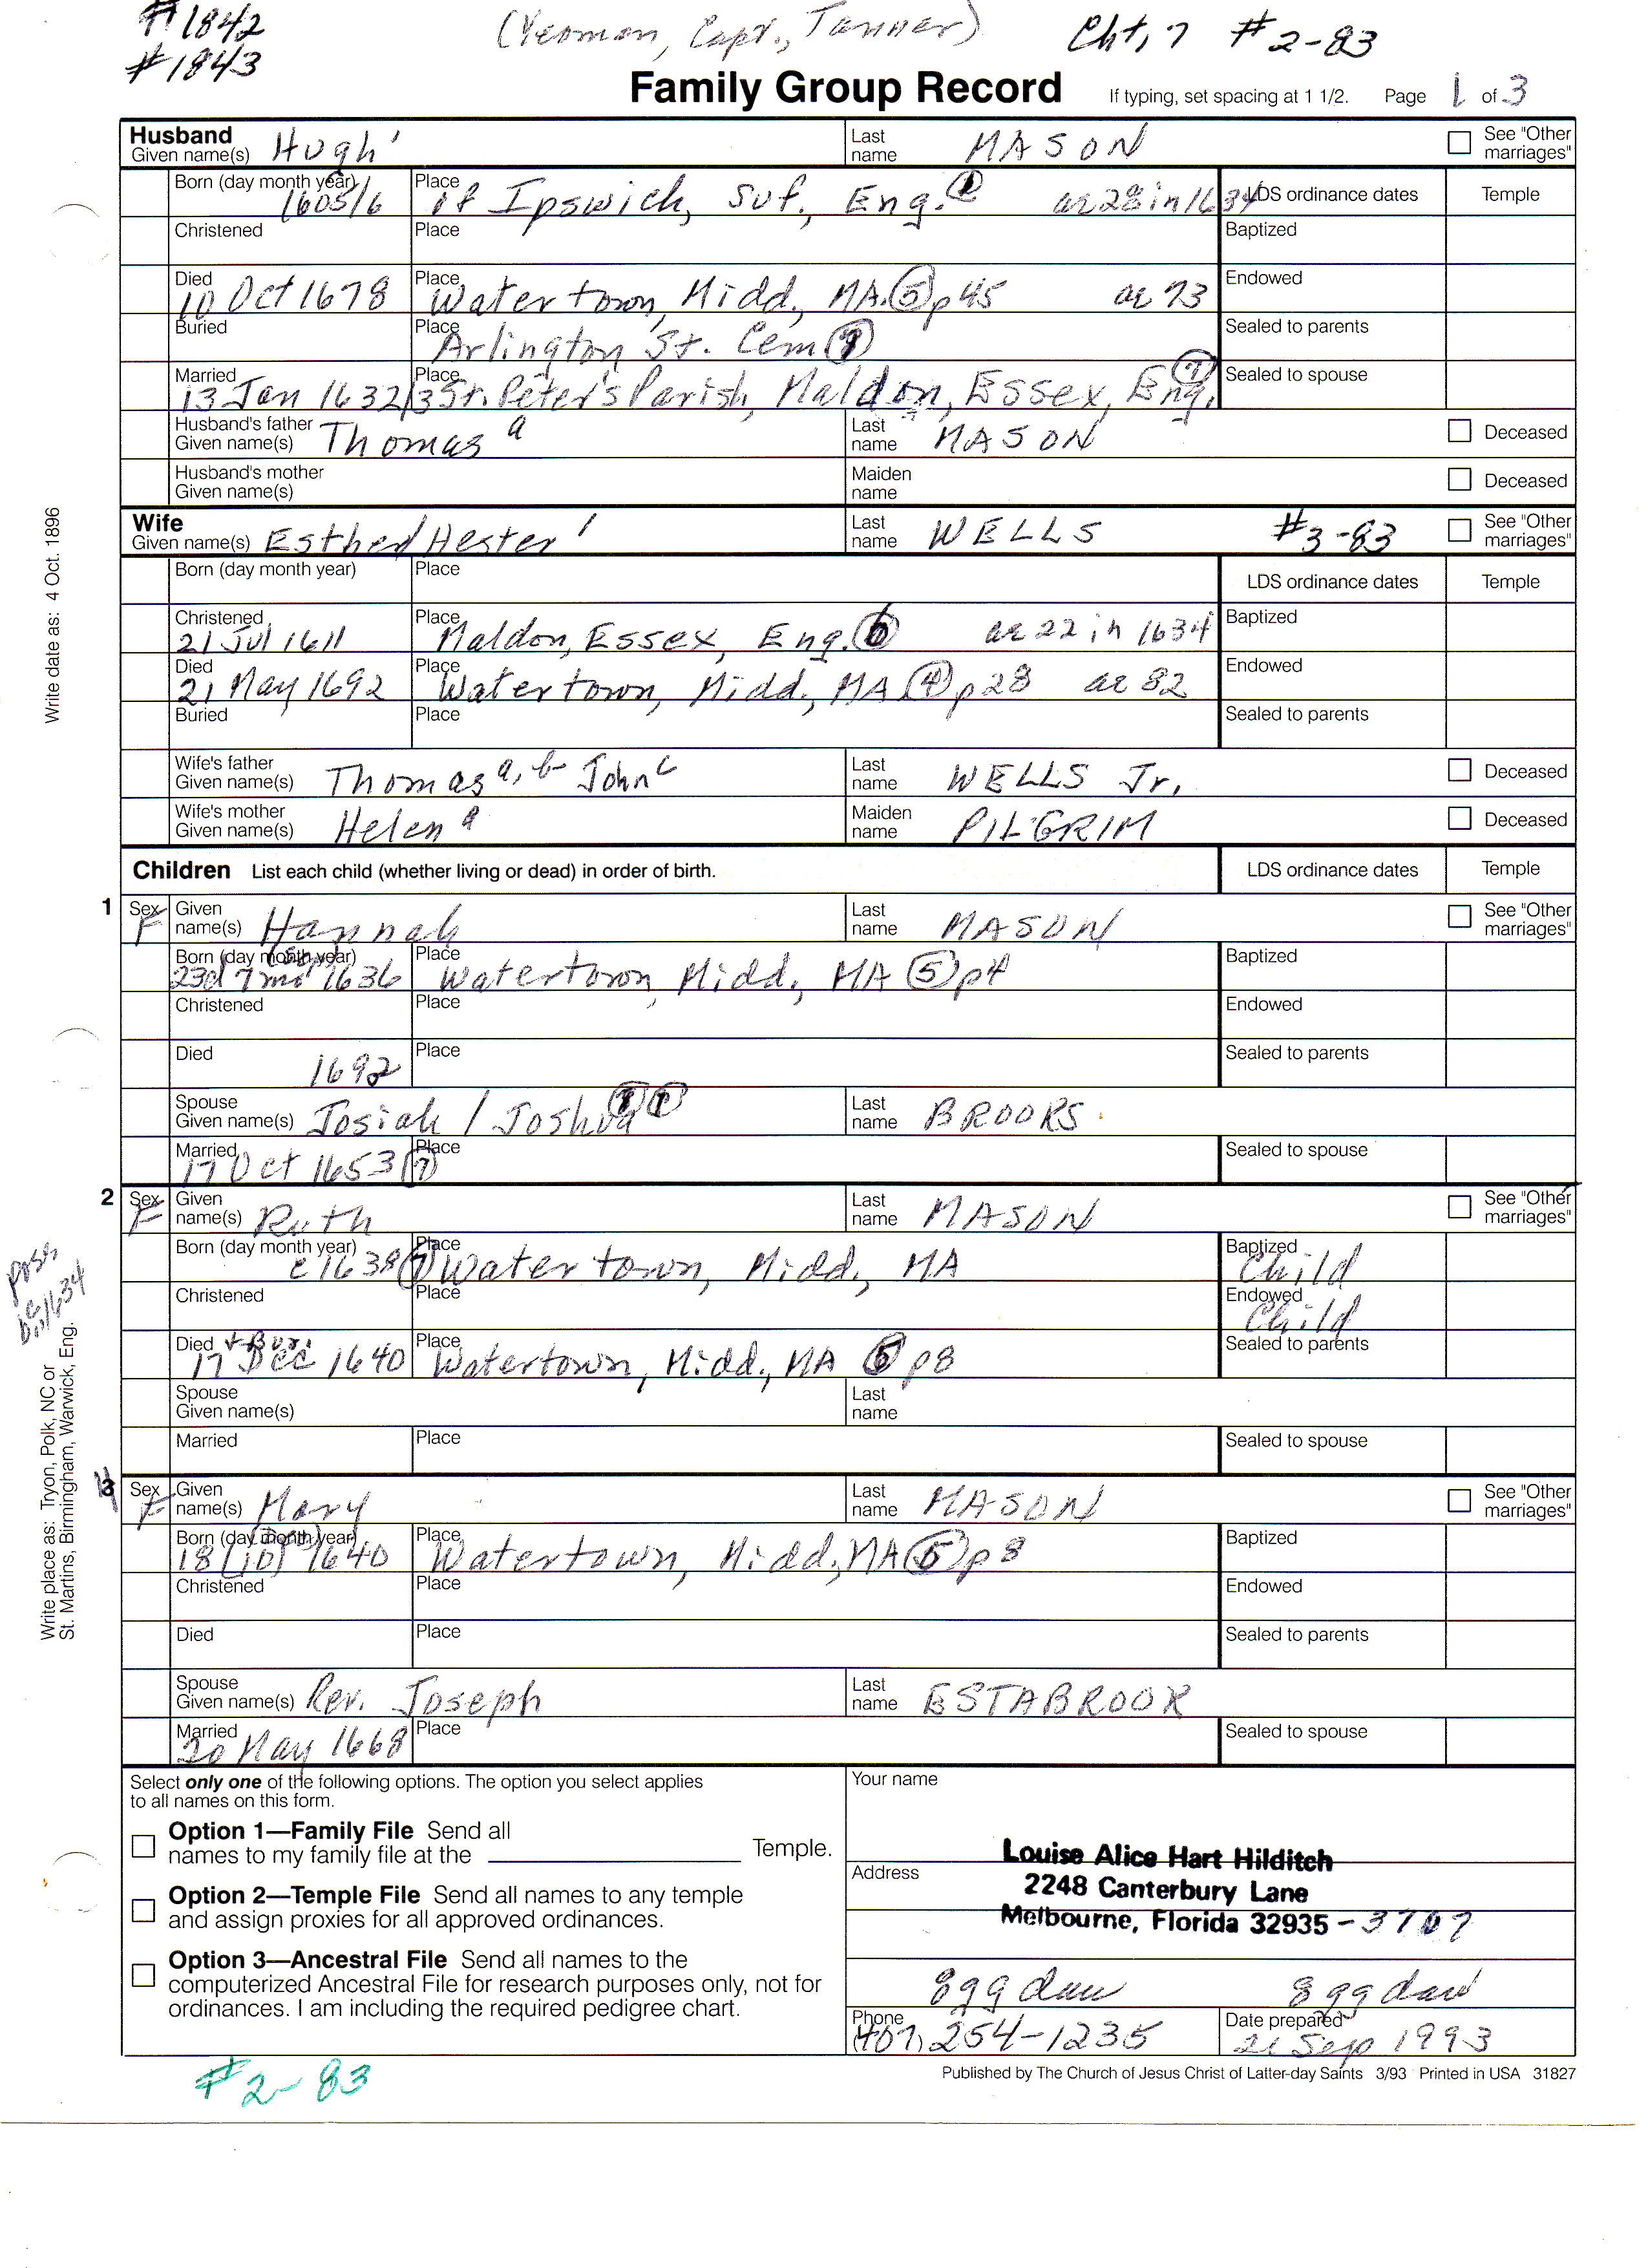 #1842 (Yeoman, Capt., Tanner) Cht, 7 #2-83
#1843
Family Group Record If typing, set spacing at 1 1/2. Page 1 of 3
Husband
Given name(s) Hugh' Last name MASON See "Other marriages"
Born (day month year) 1605/6 Place of Ipswich, Suf., Eng. ae 28 in 1634 LDS ordinance dates Temple
Christened Place Baptized
Died 10 Oct 1678 Place Watertown, Midd., MA. (5) p 45 ae 73 Endowed
Buried Place Arlington St. Cem Sealed to parents
Married 13 Jan 1632/3 Place St. Peter's Parish, Maldon, Essex, Eng. (7) Sealed to spouse
Husband's father Given name(s) Thomas a Last name MASON Deceased
Husband's mother Given name(s) Maiden name Deceased
Wife
Given name(s) Esther/Hester ' Last name WELLS #3-83 See "Other marriages"
Born (day month year) Place LDS ordinance dates Temple
Christened 21 Jul 1611 Place Maldon, Essex, Eng. (6) ae 22 in 1634 Baptized
Died 21 May 1692 Place Watertown, Midd., MA (4) p 28 ae 82 Endowed
Buried Place Sealed to parents
Wife's father Given name(s) Thomas a, b John c Last name WELLS Jr. Deceased
Wife's mother Given name(s) Helen a Maiden name PILGRIM Deceased
Children List each child (whether living or dead) in order of birth. LDS ordinance dates Temple
1 Sex F Given name(s) Hannah Last name MASON See "Other marriages"
Born (day month year) 23d 7 mo 1636 Place Watertown, Midd., MA (5) p4 Baptized
Christened Place Endowed
Died 1692 Place Sealed to parents
Spouse Given name(s) Josiah / Joshua Last name BROOKS
Married 17 Oct 1653 (7) Place Sealed to spouse
2 Sex F Given name(s) Ruth Last name MASON See "Other marriages"
Born (day month year) c 1638 (7) Place Watertown, Midd., MA Baptized Child
Christened Place Endowed Child
Died + Bur. 17 Dec 1640 Place Watertown, Midd., MA (5) p8 Sealed to parents
Spouse Given name(s) Last name
Married Place Sealed to spouse
3 4 Sex F Given name(s) Mary Last name MASON See "Other marriages"
Born (day month year) 18 (10) 1640 Place Watertown, Midd., MA (5) p 8 Baptized
Christened Place Endowed
Died Place Sealed to parents
Spouse Given name(s) Rev. Joseph Last name ESTABROOK
Married 20 May 1668 Place Sealed to spouse
Select only one of the following options. The option you select applies
to all names on this form.
Option 1—Family File Send all
names to my family file at the Temple.
Option 2—Temple File Send all names to any temple
and assign proxies for all approved ordinances.
Option 3—Ancestral File Send all names to the
computerized Ancestral File for research purposes only, not for
ordinances. I am including the required pedigree chart.
Your name
Louise Alice Hart Hilditch
Address
2248 Canterbury Lane
Melbourne, Florida 32935 - 3707
8 gg dau 8 gg dau
Phone (407) 254-1235 Date prepared 21 Sep 1993
Published by The Church of Jesus Christ of Latter-day Saints 3/93 Printed in USA 31827
#2-83
Write date as: 4 Oct. 1896
poss.
bn c 1634
Write place as: Tryon, Polk, NC or
St. Martins, Birmingham, Warwick, Eng.